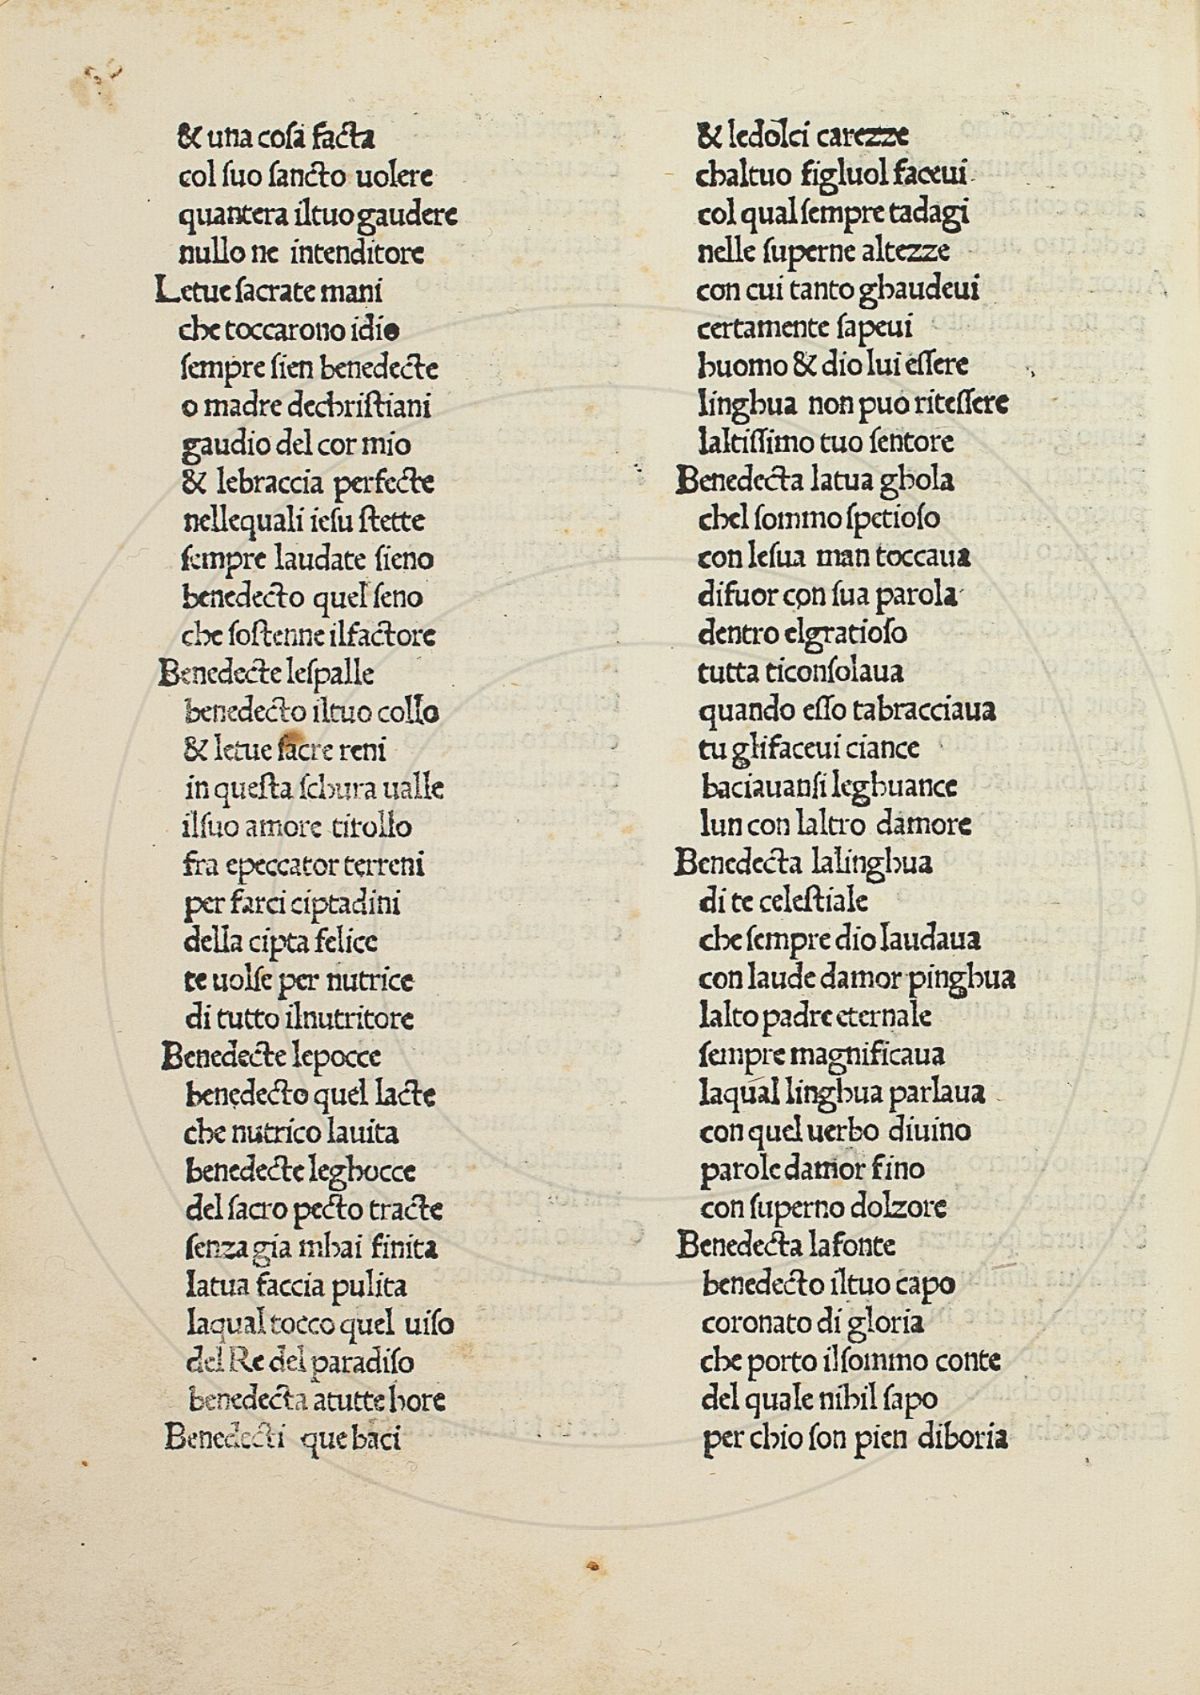 & una cosa facta
col ſuo ſancto uolere
quantera iltuo gaudere
nullo ne intenditore
Letue ſacrate mani
che toccarono idio
ſempre ſien benedecte
o madre dechriſtiani
gaudio del cor mio
& lebraccia perfecte
nellequali ieſu ſtette
ſempre laudate ſieno
benedecto quel ſeno
che soſtenne ilfactore
Benedecte leſpalle
benedecto iltuo collo
& letue ſacre reni
in queſta ſchura ualle
ilſuo amore tirollo
fra epeccator terreni
per farci ciptadini
della cipta felice
te uolſe per nutrice
di tutto ilnutritore
Benedecte lepocce
benedecto quel lacte
che nutrico lauita
benedecte leghocce
del ſacro pecto tracte
ſenza gia mhai finita
latua faccia pulita
laqual tocco quel uiſo
del Re del paradiſo
benedecta atutte hore
Benedecti que baci
& ledolci carezze
chaltuo figluol faceui
col qual ſempre tadagi
nelle ſuperne altezze
con cui tanto ghaudeui
certamente ſapeui
huomo & dio lui eſſere
linghua non puo riteſſere
laltiſſimo tuo ſentore
Benedecta latua ghola
chel ſommo ſpetioſo
con leſua man toccaua
difuor con ſua parola
dentro elgratioſo
tutta ticonſolaua
quando eſſo tabracciaua
tu glifaceui ciance
baciauanſi leghuance
lun con laltro damore
Benedecta lalinghua
di te celeſtiale
che ſempre dio laudaua
con laude damor pinghua
lalto padre eternale
ſempre magnificaua
laqual linghua parlaua
con quel uerbo diuino
parole damor fino
con ſuperno dolzore
Benedecta lafonte
benedecto iltuo capo
coronato di gloria
che porto ilſommo conte
del quale nihil ſapo
per chio ſon pien diboria